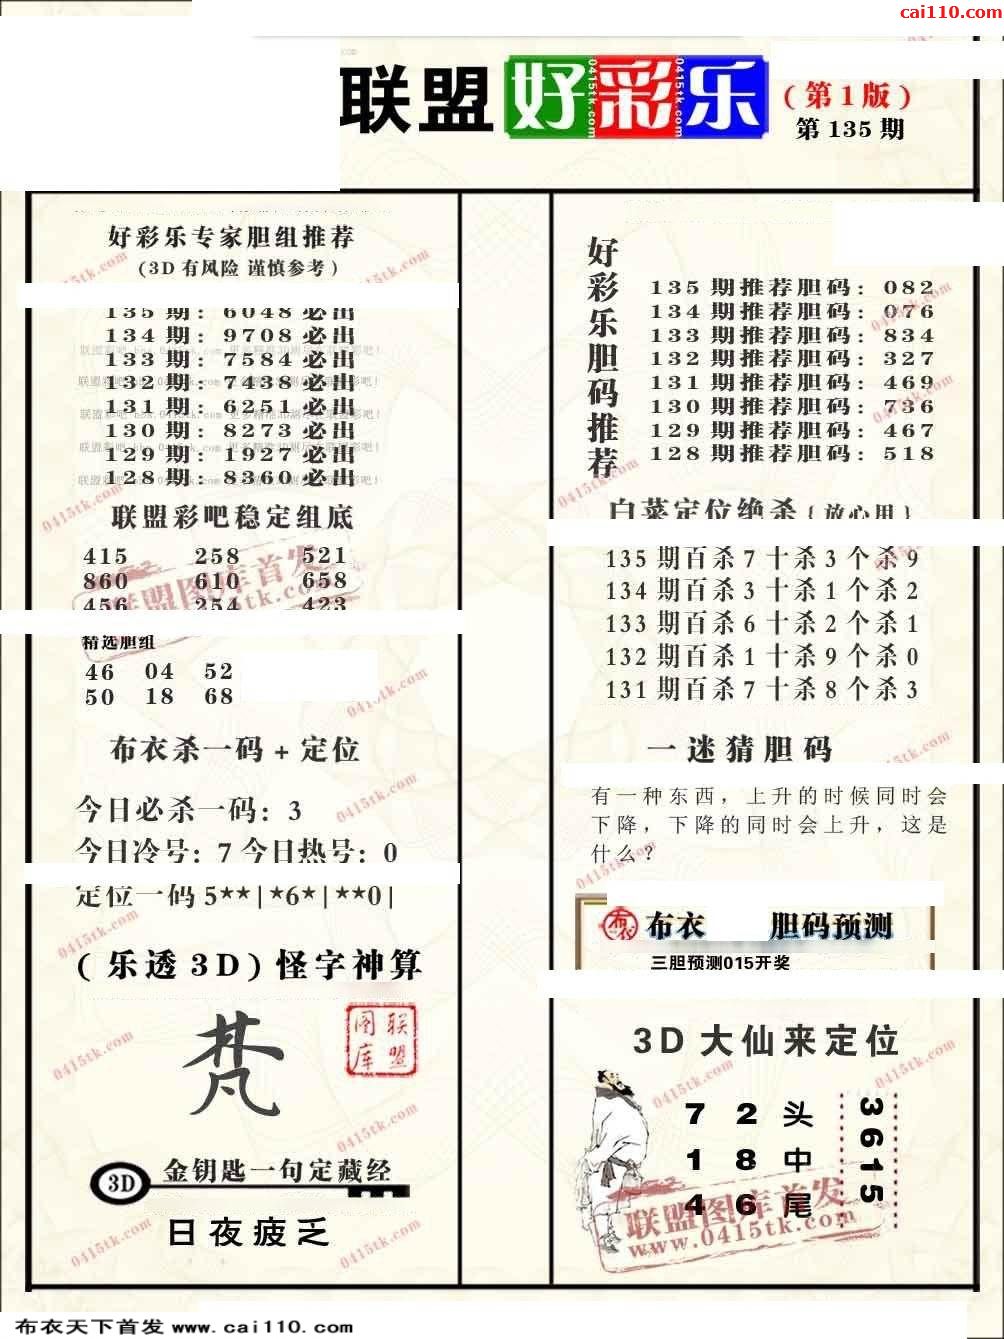 cai110.com
联盟好彩乐
(第1版)
第 135 期
好彩乐专家胆组推荐
(3D 有风险 谨慎参考)
135 期: 6048 必出
134 期: 9708 必出
133 期: 7584 必出
132 期: 7438 必出
131 期: 6251 必出
130 期: 8273 必出
129 期: 1927 必出
128 期: 8360 必出
联盟彩吧稳定组底
415 258 521
860 610 658
456 254 423
精选胆组
46 04 52
50 18 68
布衣杀一码 + 定位
今日必杀一码: 3
今日冷号: 7 今日热号: 0
定位一码 5**|*6*|**0|
(乐透 3D) 怪字神算
梵
联盟图库
3D 金钥匙一句定藏经
日夜疲乏
好彩乐胆码推荐
135 期推荐胆码: 082
134 期推荐胆码: 076
133 期推荐胆码: 834
132 期推荐胆码: 327
131 期推荐胆码: 469
130 期推荐胆码: 736
129 期推荐胆码: 467
128 期推荐胆码: 518
白菜定位绝杀 (放心用)
135 期百杀 7 十杀 3 个杀 9
134 期百杀 3 十杀 1 个杀 2
133 期百杀 6 十杀 2 个杀 1
132 期百杀 1 十杀 9 个杀 0
131 期百杀 7 十杀 8 个杀 3
一迷猜胆码
有一种东西，上升的时候同时会
下降，下降的同时会上升，这是
什么?
布衣 布衣 胆码预测
三胆预测015开奖
3D 大仙来定位
7 2 头
1 8 中
4 6 尾
3615
联盟图库首发
www.0415tk.com
布衣天下首发 www.cai110.com